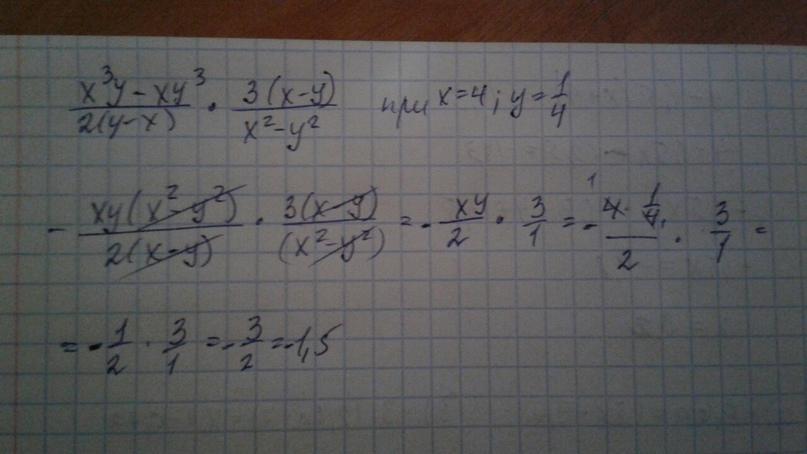 (x³y - xy³)/(2(y-x)) · (3(x-y))/(x²-y²) при x=4; y=1/4
- (xy(x²-y²))/(2(x-y)) · (3(x-y))/((x²-y²)) = - xy/2 · 3/1 = - (4 · 1/4)/2 · 3/1 =
= - 1/2 · 3/1 = - 3/2 = -1,5